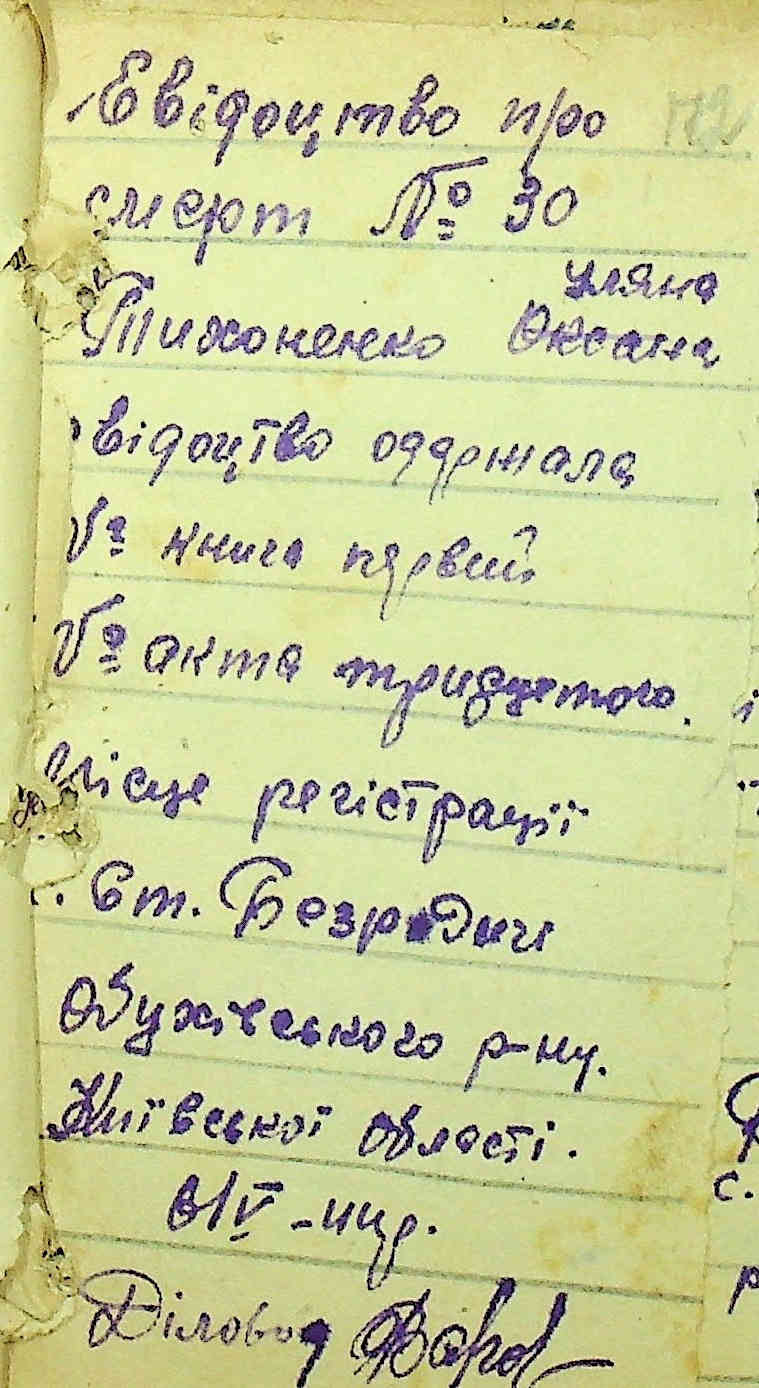 Свідоцтво про
смерт № 30
Уляна
Тихоненко Оксана
свідоцтво оддржала
№ книга первий
№ акта тридцетого.
місце регістрації
с. Ст. Безрадичі
Обухівського р-ну.
Київської області.
6/IV -ццр.
Діловод